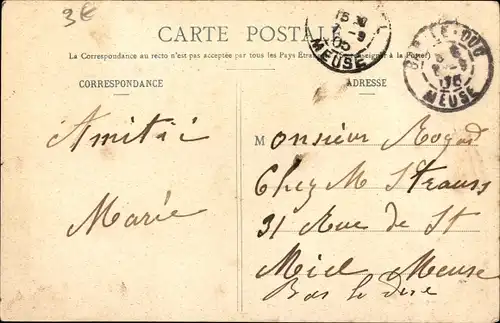 3€
CARTE POSTALE
La Correspondance au recto n'est pas acceptée par tous les Pays Étran
à la Poste)
CORRESPONDANCE
ADRESSE
MEUSE
BAR-LE-DUC
MEUSE
Amitié
Marie
Monsieur
Chez M Strauss
31 Rue de St
Miel Meuse
Bar le Duc